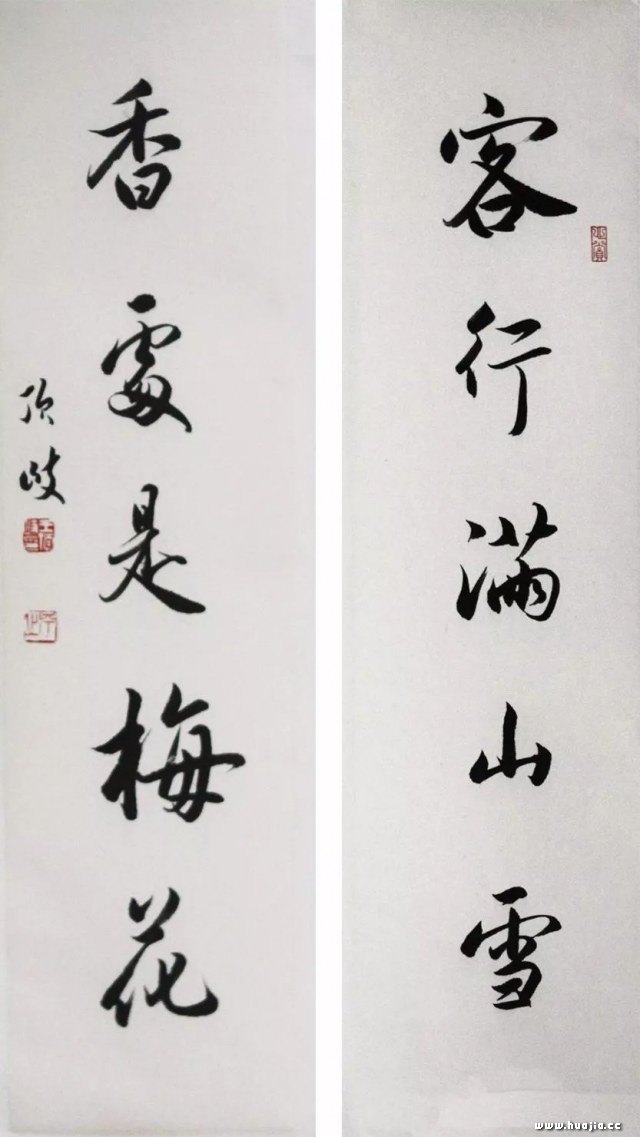 客行满山雪
香處是梅花
www.huajia.cc